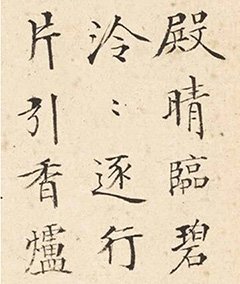 殿晴臨碧
泠〻逐行
片引香爐